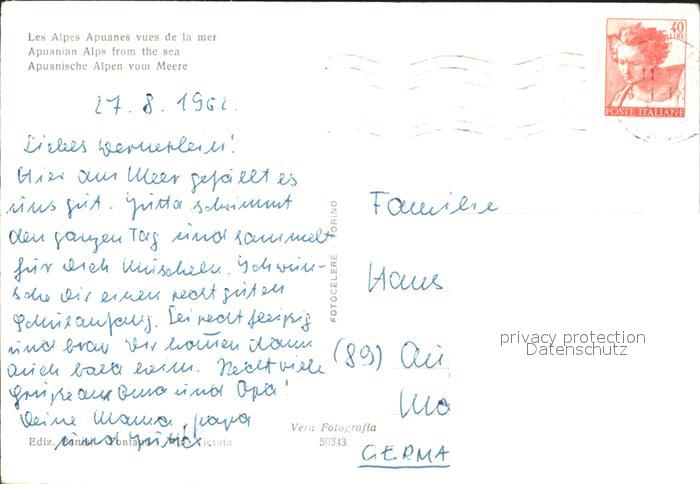 Les Alpes Apuanes vues de la mer
Apuanian Alps from the sea
Apuanische Alpen vom Meere
40
LIRE
POSTE ITALIANE
27.8.1962.
Liebes Wernerlein!
Hier am Meer gefällt es
uns gut. Jutta schwimmt
den ganzen Tag und sammelt
für Dich Muscheln. Ich wün-
sche Dir einen recht guten
Schulanfang. Sei recht fleißig
und brav. Wir kommen dann
auch bald heim. Recht viele
Grüße an Oma und Opa!
Deine Mama, papa
und Jutta.
FOTOCELERE TORINO
Familie
Hans
(89)
GERMA
privacy protection
Datenschutz
Vera Fotografia
Ediz. Vietata
50343